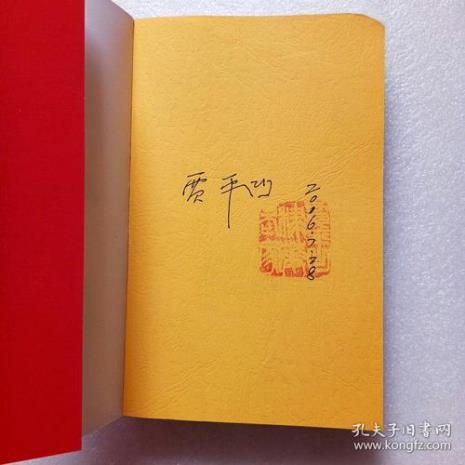 贾平凹
2006.7.28
孔夫子旧书网
www.kongfz.com